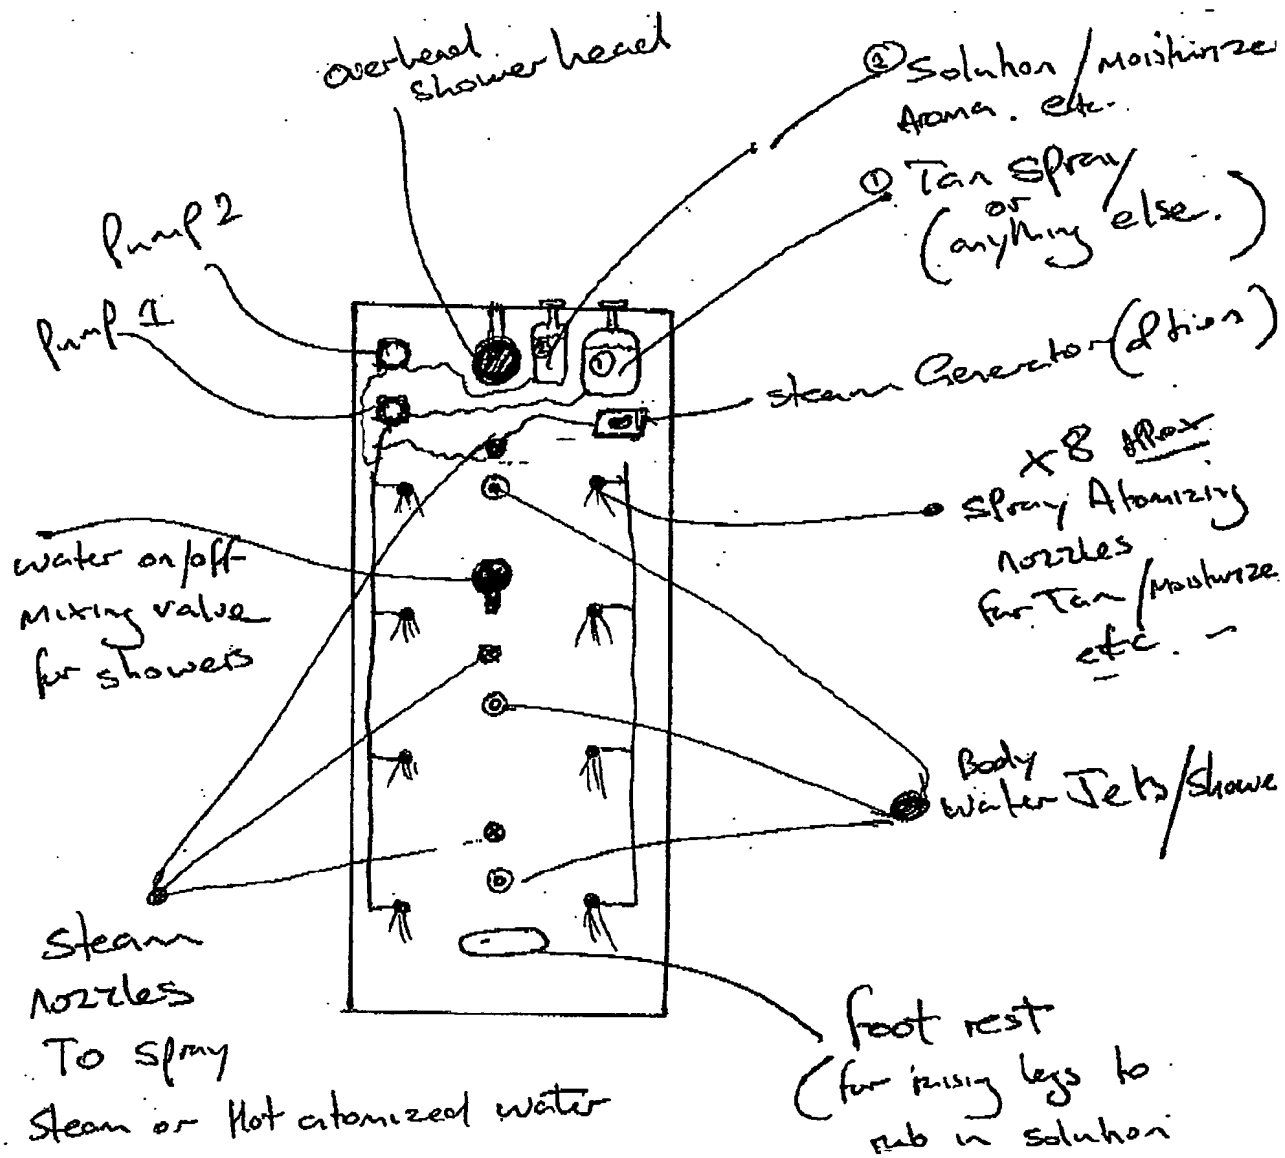 overhead
shower head
② Solution / Moisturize
Aroma. etc.
① Tan Spray/
or
(anything else.)
Pump 2
Pump 1
②
①
Steam Generator (Option)
x8 Approx
Spray Atomizing
nozzles
for Tan / Moisturize
etc.
water on/off
mixing valve
for showers
Body
water Jets/Showe
Steam
nozzles
To spray
Steam or Hot atomized water
foot rest
(for raising legs to
rub in solution